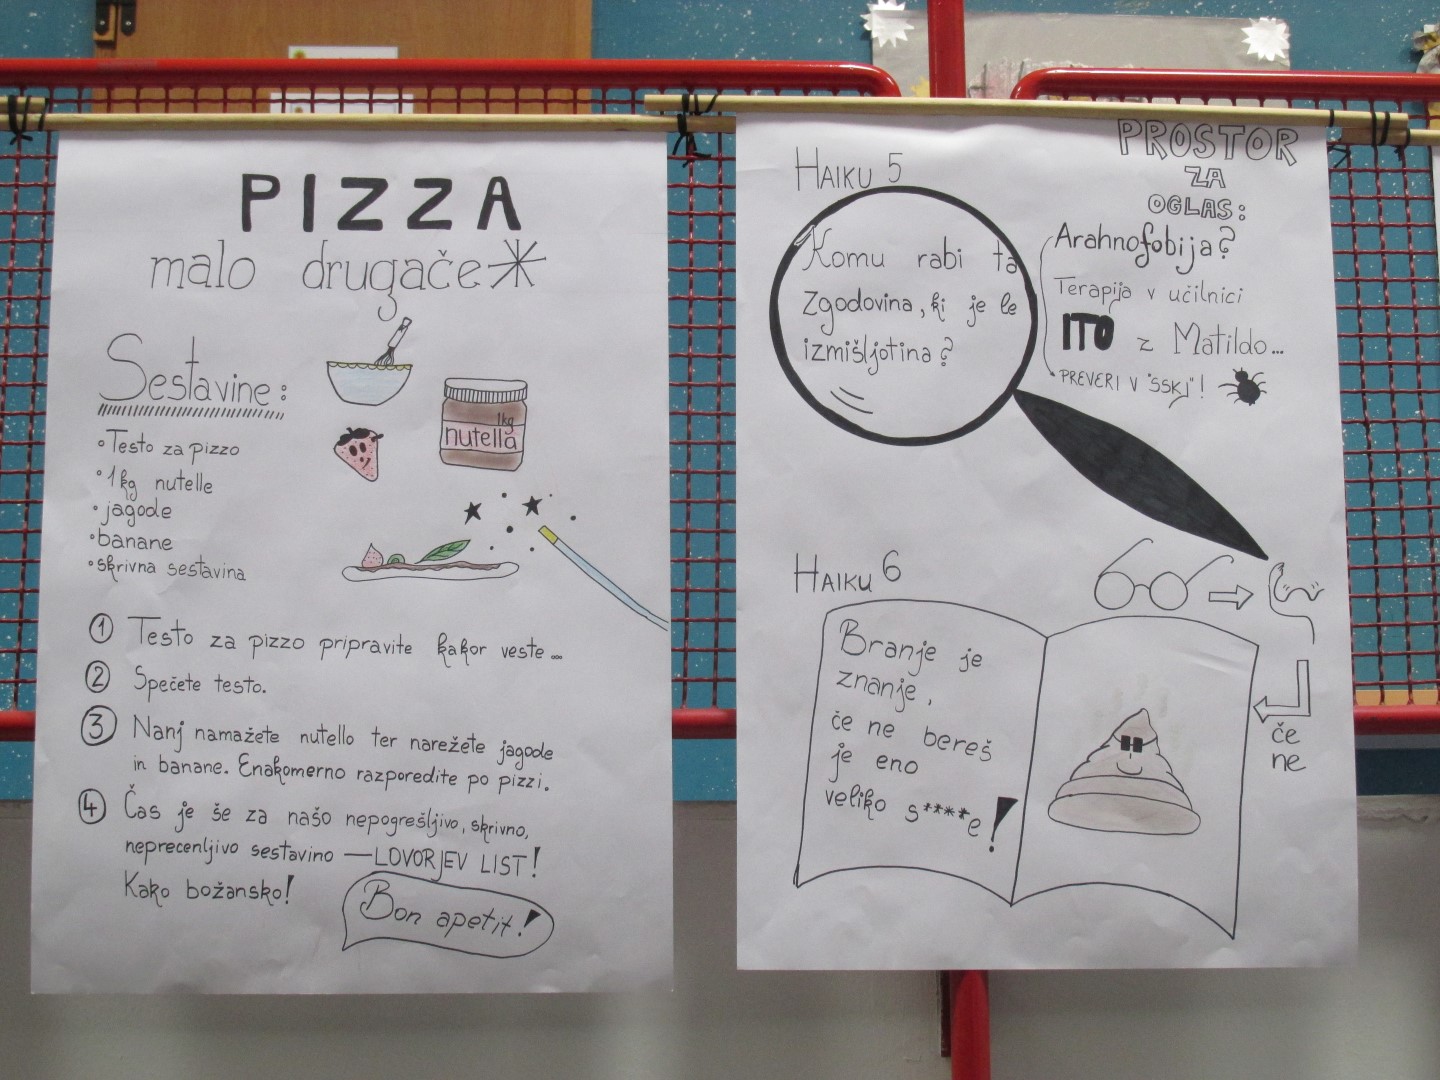 PIZZA
malo drugače*
Sestavine:
Testo za pizzo
1kg nutelle
jagode
banane
skrivna sestavina
1kg
nutella
1 Testo za pizzo pripravite kakor veste...
2 Spečete testo.
3 Nanj namažete nutello ter narežete jagode
in banane. Enakomerno razporedite po pizzi.
4 Čas je še za našo nepogrešljivo, skrivno,
neprecenljivo sestavino — LOVORJEV LIST!
Kako božansko!
Bon apetit!
HAIKU 5
Komu rabi ta
zgodovina, ki je le
izmišljotina?
PROSTOR
ZA
OGLAS:
Arahnofobija?
Terapija v učilnici
ITO z Matildo...
PREVERI V "SSKJ"!
HAIKU 6
Branje je
znanje,
če ne bereš
je eno
veliko s****e!
če
ne